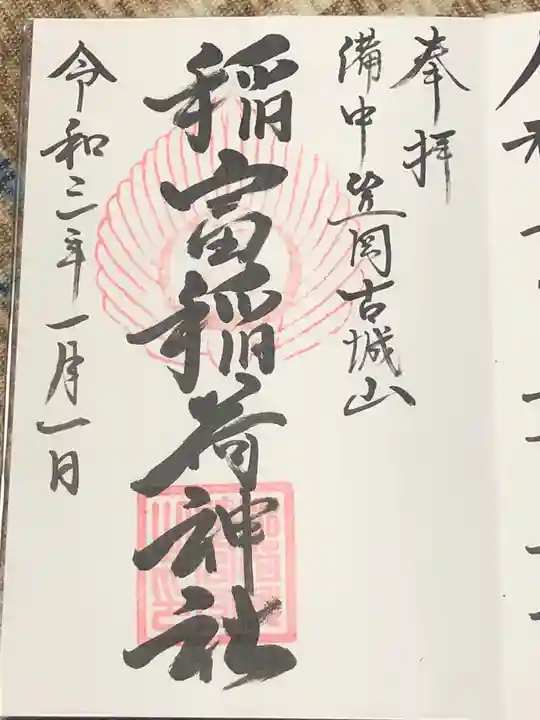 奉拝
備中笠岡古城山
稲富稲荷神社
令和三年一月一日